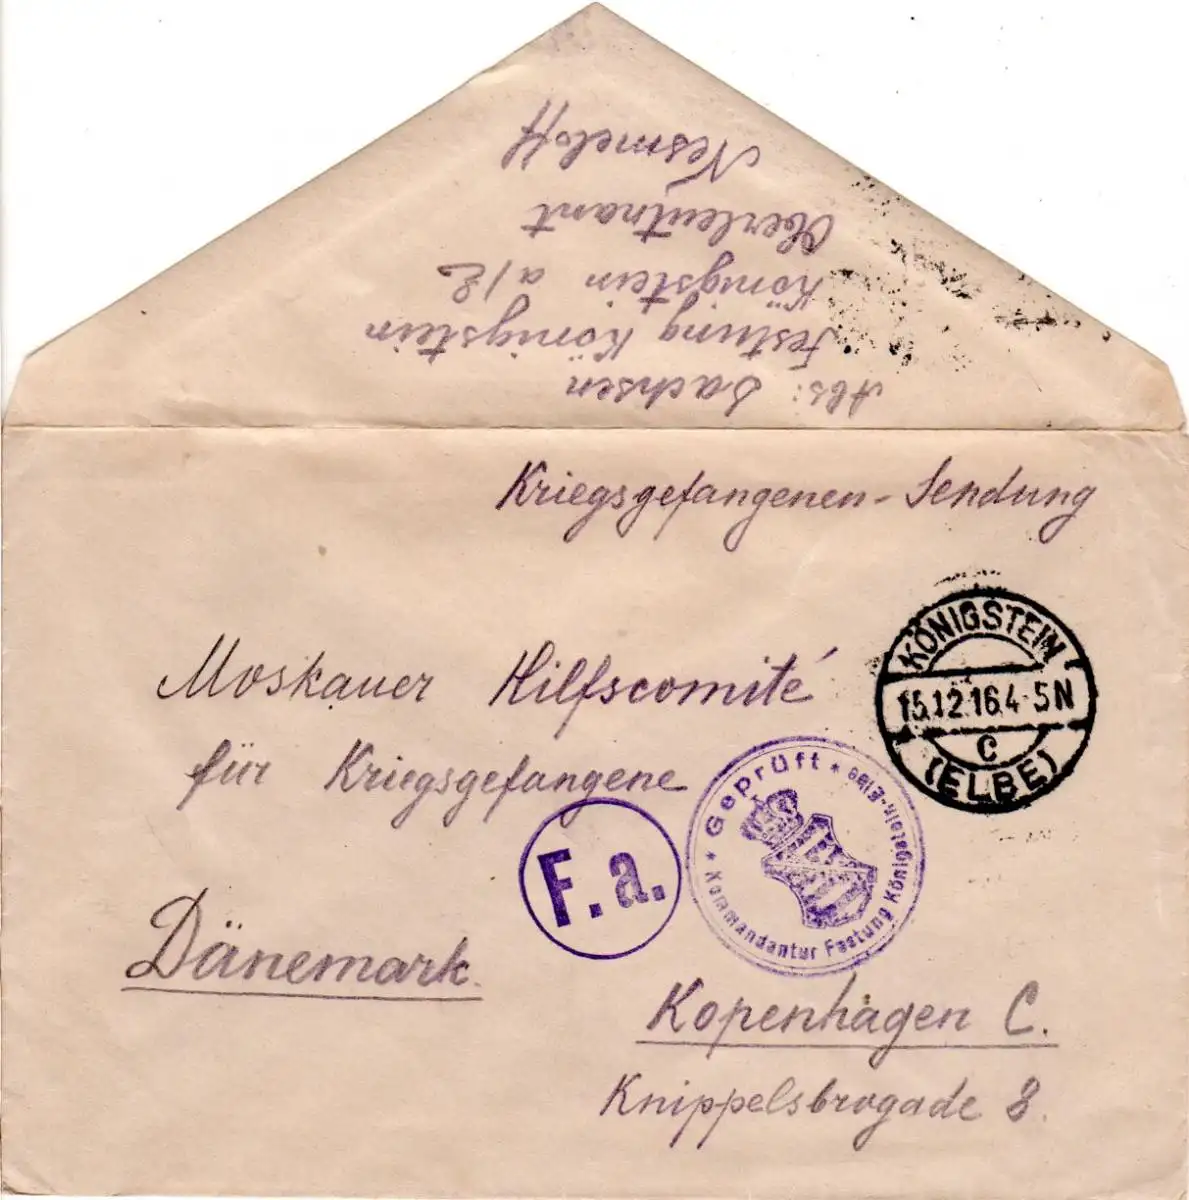 Abs: Sachsen
Festung Königstein
Königstein a/E
Oberleutnant
Nesmeloff
Kriegsgefangenen-Sendung
KÖNIGSTEIN
15.12.16.4-5N
c
(ELBE)
Moskauer Hilfscomité
für Kriegsgefangene
* Geprüft *
Kommandantur Festung Königstein-Elbe
F. a.
Dänemark.
Kopenhagen C.
Knippelsbrogade 8.